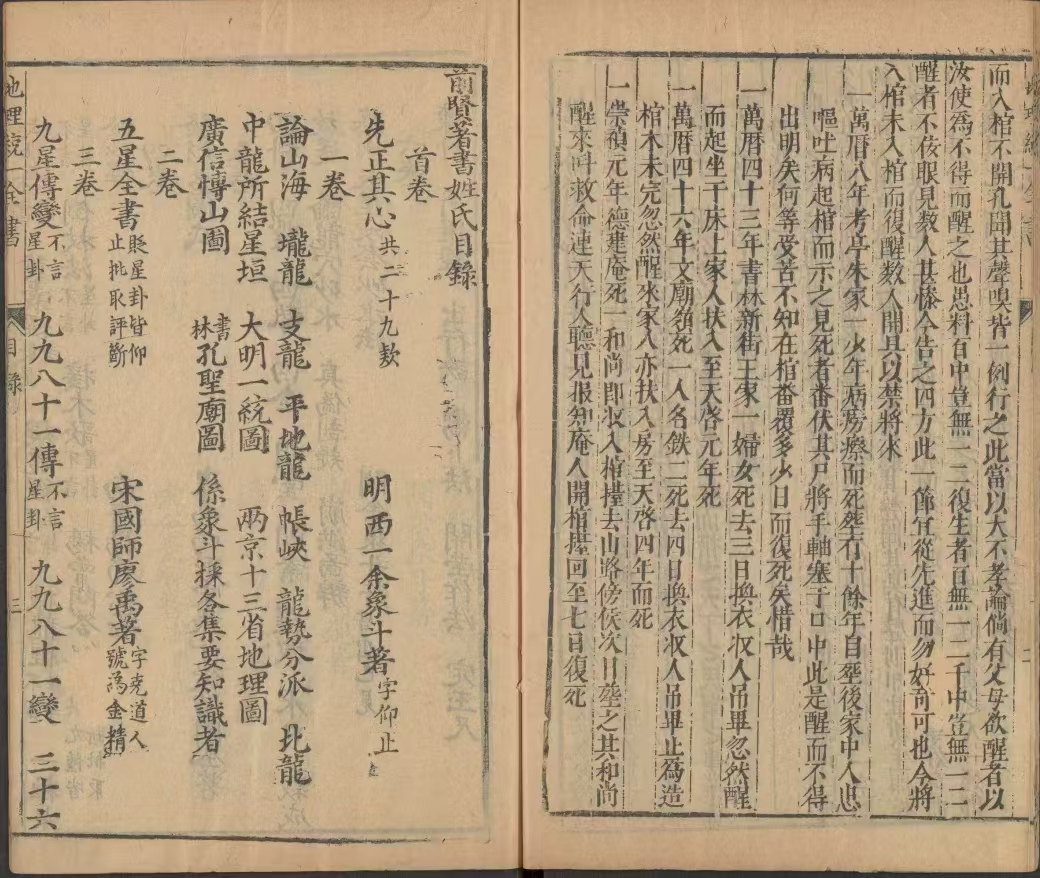 而入棺不開孔聞其聲嗅皆一例行之此當以大不孝論倘有父母欲醒者以
汝使為不得而醒之也愚料百中豈無一二復生者百無一二千中豈無一二
醒者不依眼見数人甚惨今告之四方此一節宜從先進而勿好奇可也今將
入棺未入棺而復醒数人開具以禁將來
一萬曆八年考亭朱家一少年病癆瘵而死塟有十餘年自塟後家中人患
嘔吐病起棺而示之見死者番伏其尸將手軸塞于口中此是醒而不得
出明矣何等受苦不知在棺番覆多少日而復死矣惜哉
一萬曆四十三年書林新街王家一婦女死去三日換衣収人吊畢忽然醒
而起坐于床上家人扶入至天啓元年死
一萬曆四十六年文廟領死一人名鉄二死去四日換衣収人吊畢止為造
棺木未完忽然醒來家人亦扶入房至天啓四年而死
一崇禎元年德建庵死一和尚即収入棺擡去山路傍俟次日塟之其和尚
醒來呌救命連天行人聽見报知庵人開棺擡回至七日復死
地理統一全書
目錄
三
前賢著書姓氏目錄
首卷
先正其心 共二十九欵 明 西一余象斗著 字仰止
一卷
論山海 壠龍 支龍 平地龍 帳峽 龍勢分派 北龍
中龍所結星垣 大明一統圖 兩京十三省地理圖
廣信愽山圖 書林孔聖廟圖 係象斗採各集要知識者
二卷
五星全書 貶星卦皆仰止批取評斷 宋國師廖禹著 字克道人號為金精
三卷
九星傳變 不言星卦 九九八十一傳 不言星卦 九九八十一變 三十六